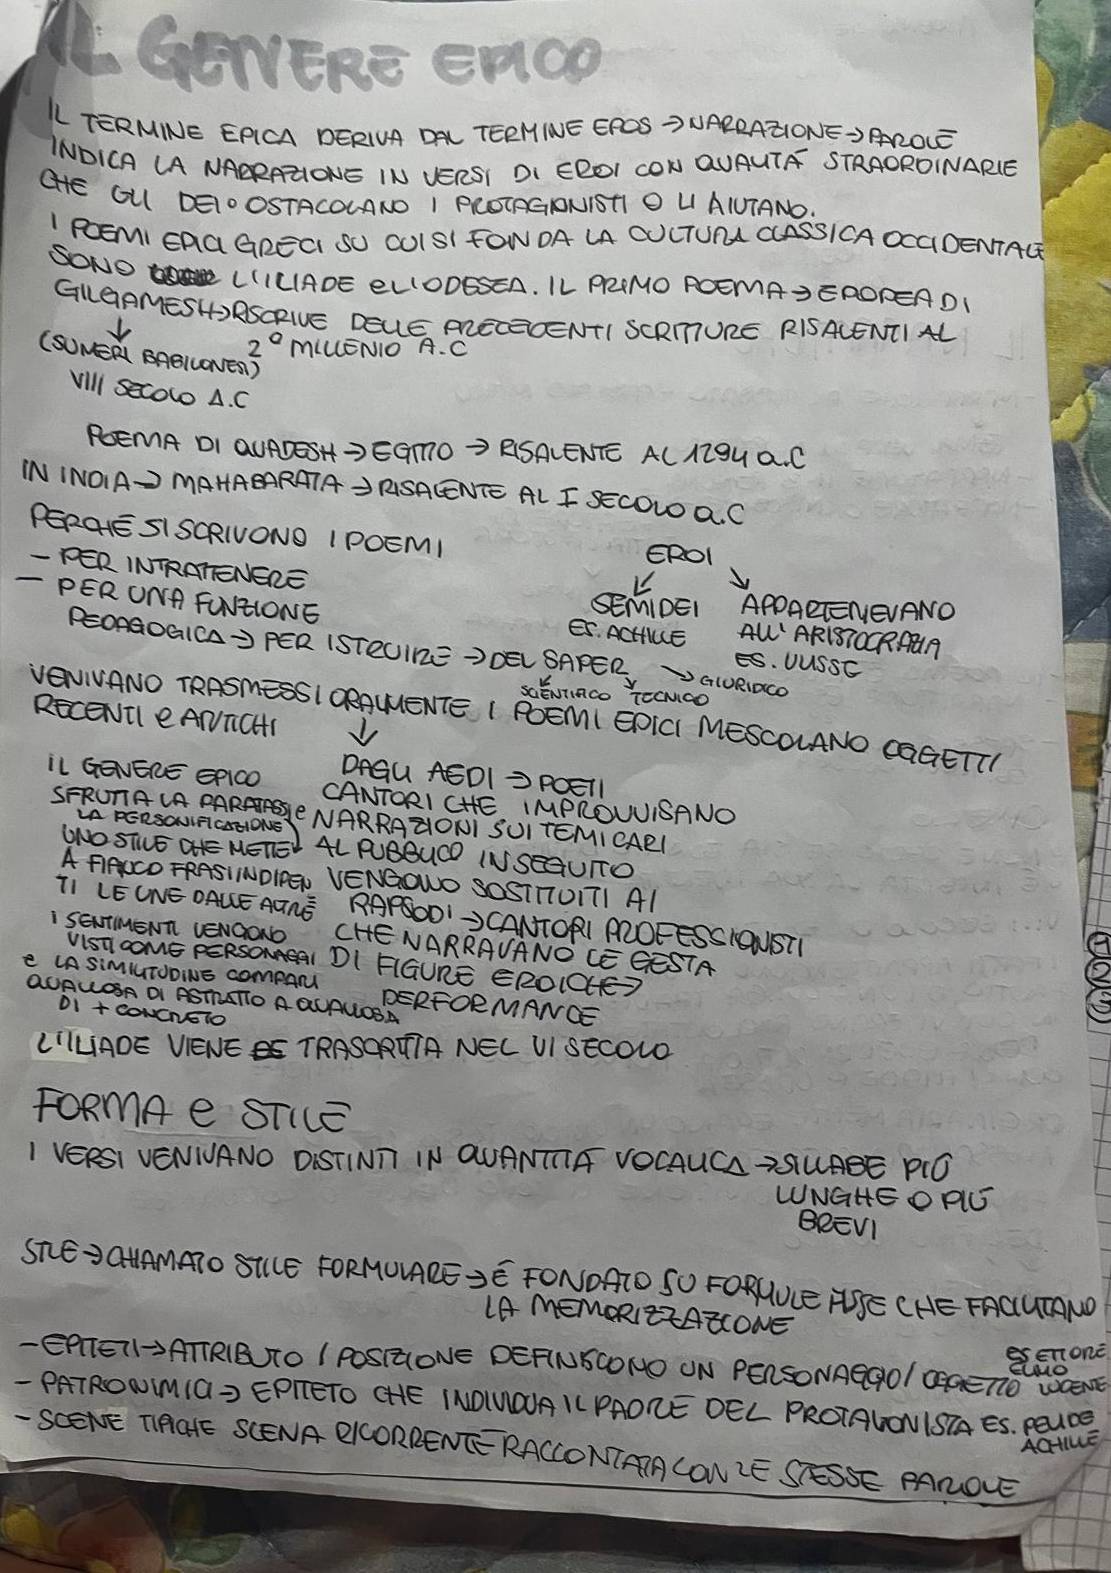 IL GENERE EPICO
IL TERMINE EPICA DERIVA DAL TERMINE EPOS → NARRAZIONE → PAROLE
INDICA LA NARRAZIONE IN VERSI DI EROI CON QUALITÁ STRAORDINARIE
CHE GLI DEI O OSTACOLANO I PROTAGIONISTI O LI AIUTANO.
I POEMI EPICI GRECI SU CUI SI FONDA LA CULTURA CLASSICA OCCIDENTALE
SONO L'ILIADE e L'ODESEA. IL PRIMO POEMA → EPOPEA DI
GILGAMESH → RISCRIVE DELLE PRECEDENTI SCRITTURE RISALENTI AL
2° MILLENIO A.C
(SUMERI BABILONESI)
VIII SECOLO A.C
POEMA DI QUADESH → EGITTO → RISALENTE AL 1294 a.C
IN INDIA → MAHABARATA → RISALENTE AL I SECOLO a.C
PERCHÉ SI SCRIVONO I POEMI
- PER INTRATTENERE
- PER UNA FUNZIONE
PEDAGOGICA → PER ISTRUIRE → DEL SAPER
SCIENTIFICO TECNICO → GIURIDICO
EROI
SEMIDEI
ES. ACHILLE
APPARTENEVANO
ALL'ARISTOCRAZIA
ES. ULISSE
VENIVANO TRASMESSI ORALMENTE I POEMI EPICI MESCOLANO OGGETTI
RECENTI e ANTICHI
DAGLI AEDI → POETI
CANTORI CHE IMPROVVISANO
NARRAZIONI SUI TEMI CARI
AL PUBBLICO IN SEGUITO
VENGONO SOSTITUITI AI
RAPSODI → CANTORI PROFESSIONISTI
CHE NARRAVANO LE GESTA
DI FIGURE EROICHE →
PERFORMANCE
IL GENERE EPICO
SFRUTTA LA PARATASSI e
LA PERSONIFICAZIONE
UNO STILE CHE METTE
A FIANCO FRASI INDIPEN
TI LE UNE DALLE ALTRE
I SENTIMENTI VENGONO
VISTI COME PERSONAGGI
e LA SIMILITUDINE COMPARI
QUALCOSA DI ASTRATTO A QUALCOSA
DI + CONCRETO
L'ILIADE VIENE TRASCRITTA NEL VI SECOLO
FORMA e STILE
I VERSI VENIVANO DISTINTI IN QUANTITÁ VOCALICA → SILLABE PIÚ
LUNGHE O PIÚ
BREVI
STILE → CHIAMATO STILE FORMULARE → É FONDATO SU FORMULE FISSE CHE FACILITANO
LA MEMORIZZAZIONE
- EPITETI → ATTRIBUTO / POSIZIONE DEFINISCONO UN PERSONAGGIO / OGGETTO ES ETTORE
ELMO
LUCENTE
- PATRONIMICI → EPITETO CHE INDIVIDUA IL PADRE DEL PROTAGONISTA ES. PELIDE
ACHILLE
- SCENE TIPICHE SCENA RICORRENTE RACCONTATA CON LE STESSE PAROLE
1
2
3